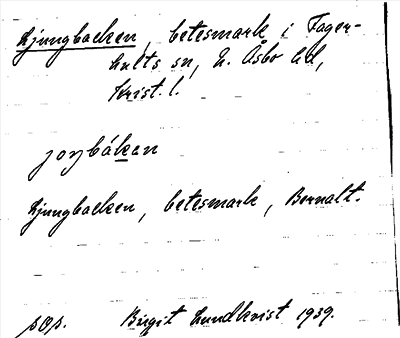 Ljungbacken, betesmark i Fager-
hults sn, N. Åsbo hd,
Krist. l.
joŋbákan
Ljungbacken, betesmark, Bernalt.
pop. Birgit Lundkvist 1939.